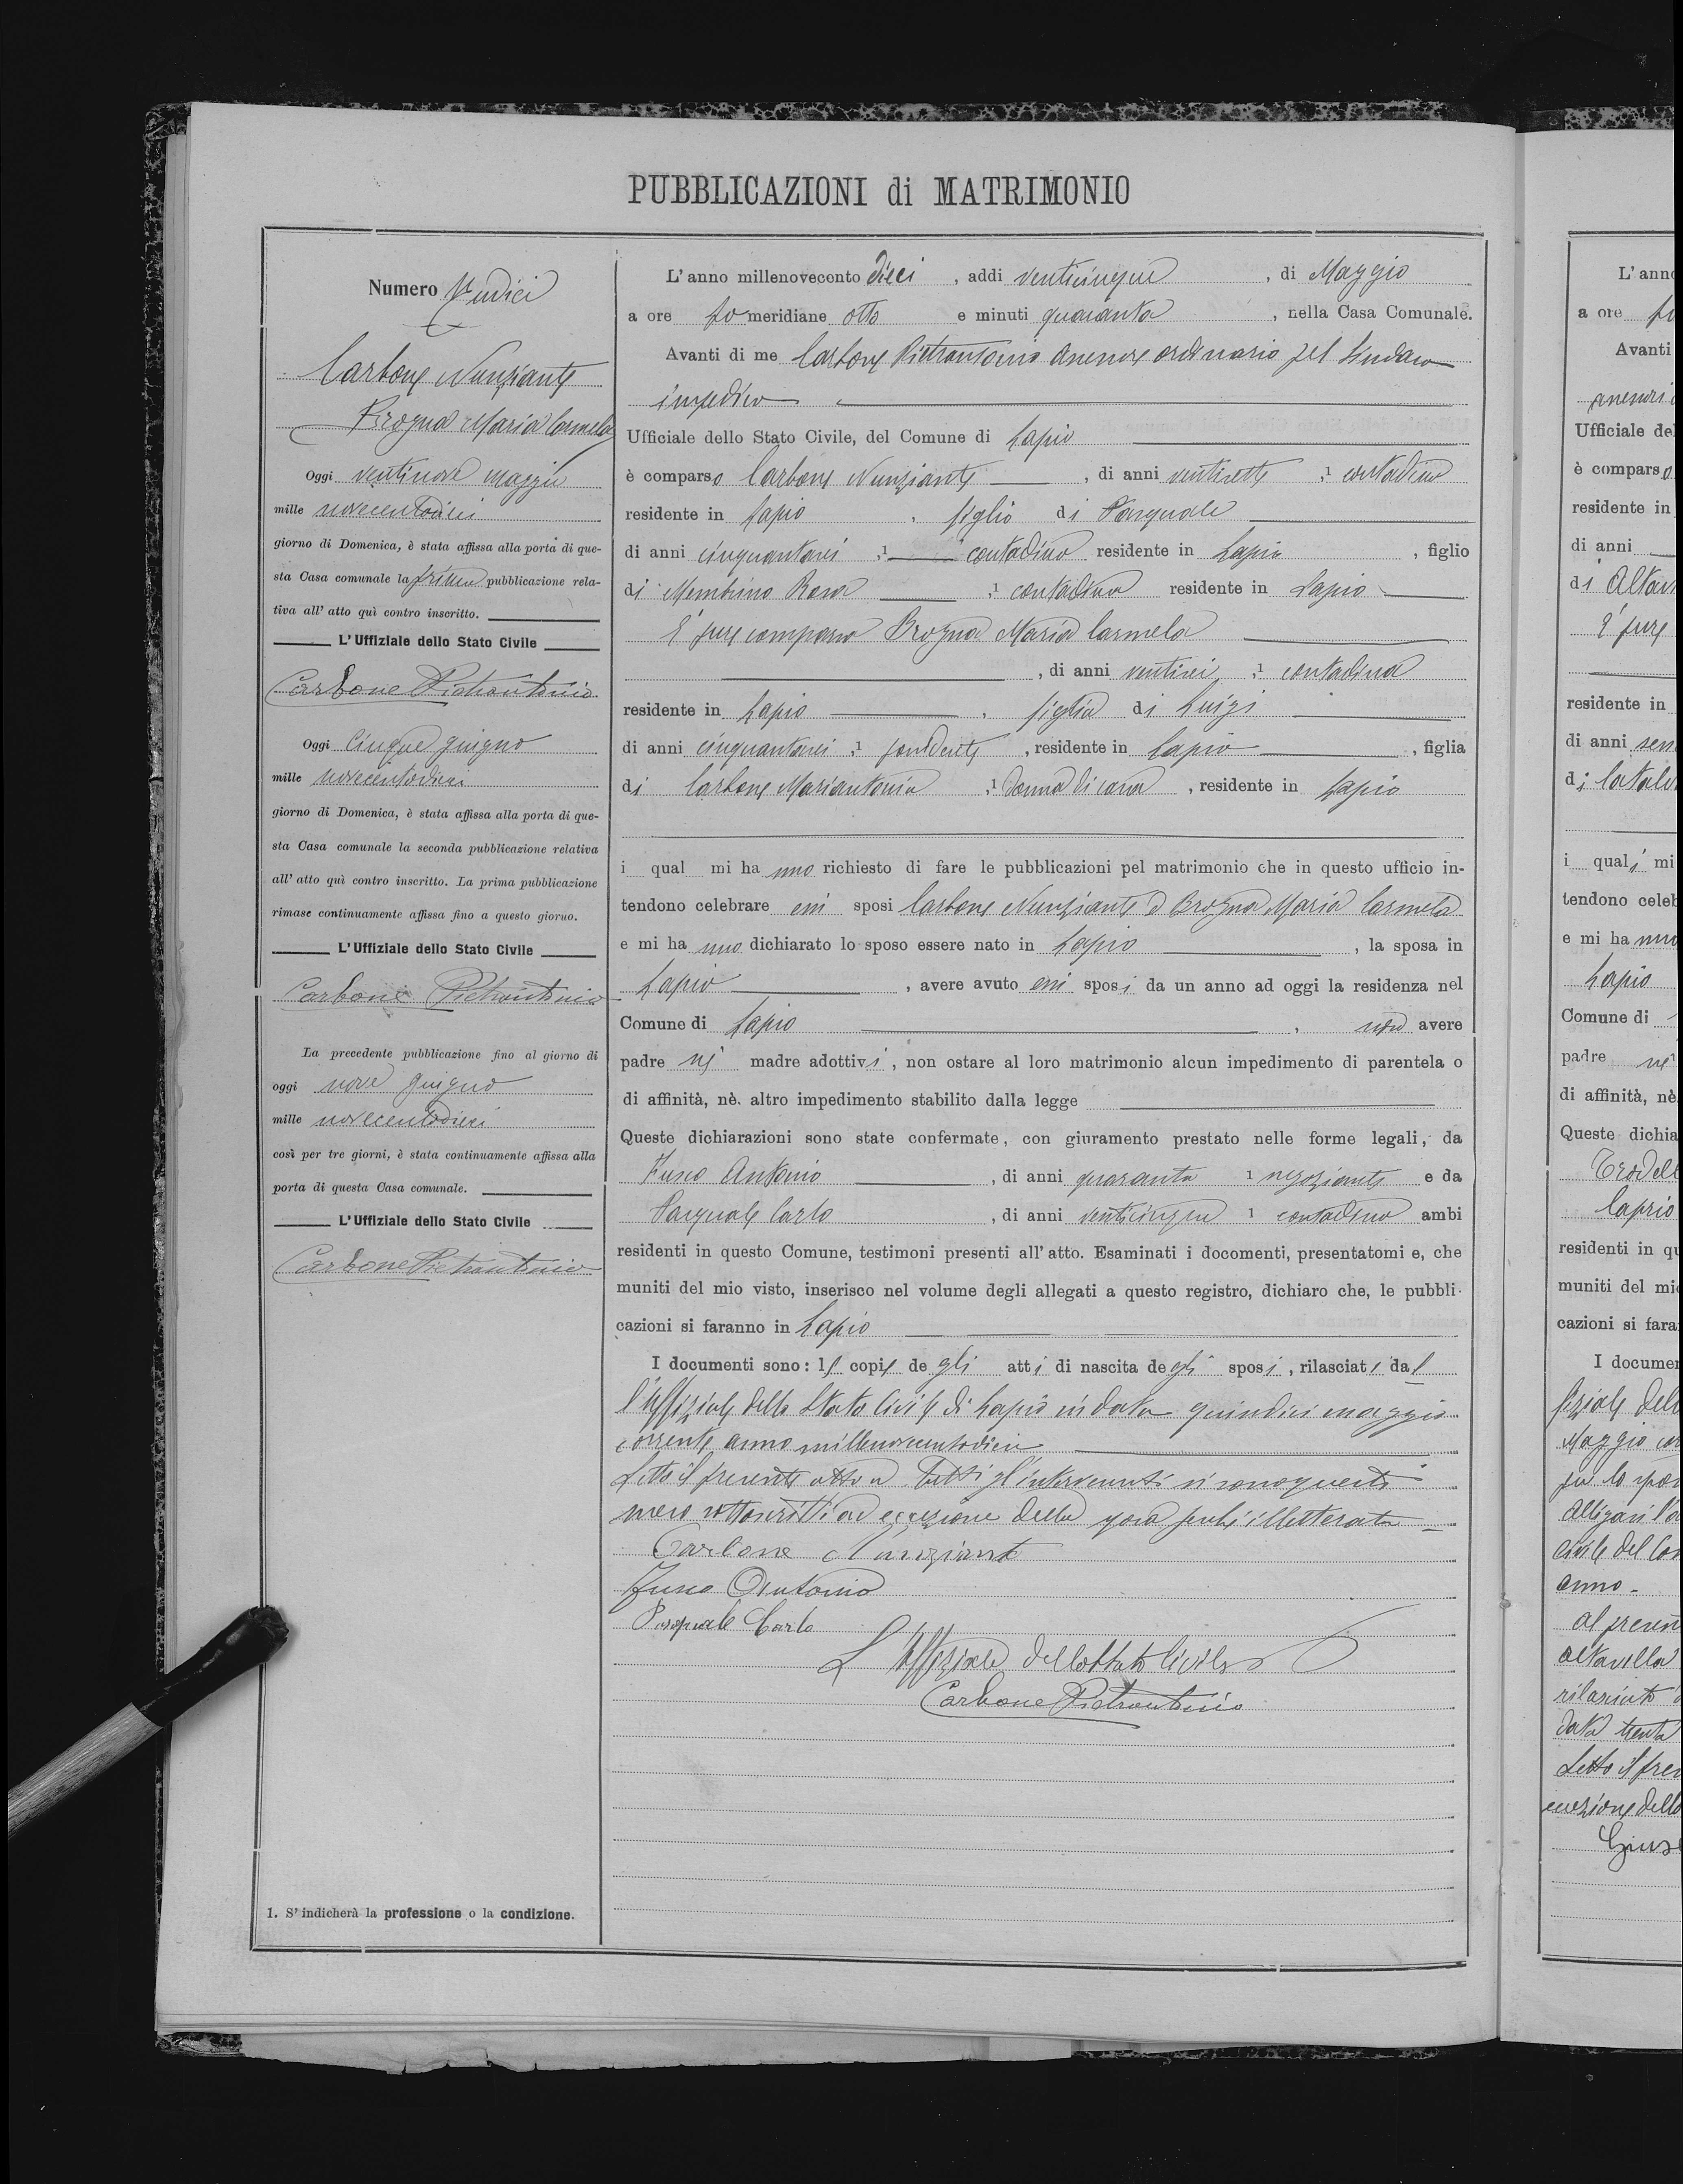 PUBBLICAZIONI di MATRIMONIO
Numero Undici
Carbone Nunziante
Brogna Maria Carmela
Oggi ventinove maggio
mille novecentodieci
giorno di Domenica, è stata affissa alla porta di que-
sta Casa comunale la prima pubblicazione rela-
tiva all' atto quì contro inscritto.
L'Uffiziale dello Stato Civile
Carbone Pietrantonio
Oggi Cinque giugno
mille novecentodieci
giorno di Domenica, è stata affissa alla porta di que-
sta Casa comunale la seconda pubblicazione relativa
all' atto quì contro inscritto. La prima pubblicazione
rimase continuamente affissa fino a questo giorno.
L'Uffiziale dello Stato Civile
Carbone Pietrantonio
La precedente pubblicazione fino al giorno di
oggi nove giugno
mille novecentodieci
così per tre giorni, è stata continuamente affissa alla
porta di questa Casa comunale.
L'Uffiziale dello Stato Civile
Carbone Pietrantonio
1. S' indicherà la professione o la condizione.
L' anno millenovecento dieci , addi venticinque , di Maggio
a ore po meridiane otto e minuti quaranta , nella Casa Comunale.
Avanti di me Carbone Pietrantonio assessore ordinario pel Sindaco
impedito
Ufficiale dello Stato Civile, del Comune di Lapio
è comparso Carbone Nunziante , di anni ventisette , 1 contadino
residente in Lapio , figlio di Pasquale
di anni cinquantasei , 1 contadino residente in Lapio , figlio
di Membrino Rosa , 1 contadina residente in Lapio
È pure comparsa Brogna Maria Carmela
, di anni ventisei , 1 contadina
residente in Lapio , figlia di Luigi
di anni cinquantasei , 1 possidente , residente in Lapio , figlia
di Carbone Mariantonia , 1 donna di casa , residente in Lapio
i qual mi ha nno richiesto di fare le pubblicazioni pel matrimonio che in questo ufficio in-
tendono celebrare essi sposi Carbone Nunziante e Brogna Maria Carmela
e mi ha nno dichiarato lo sposo essere nato in Lapio , la sposa in
Lapio , avere avuto essi sposi da un anno ad oggi la residenza nel
Comune di Lapio , non avere
padre nè madre adottivi , non ostare al loro matrimonio alcun impedimento di parentela o
di affinità, nè. altro impedimento stabilito dalla legge
Queste dichiarazioni sono state confermate, con giuramento prestato nelle forme legali, da
Fusco Antonio , di anni quaranta 1 negoziante e da
Pasquale Carlo , di anni venticinque 1 contadino ambi
residenti in questo Comune, testimoni presenti all' atto. Esaminati i documenti, presentatomi e, che
muniti del mio visto, inserisco nel volume degli allegati a questo registro, dichiaro che, le pubbli-
cazioni si faranno in Lapio
I documenti sono: le copie de gli atti di nascita degli sposi , rilasciate dal
l'Uffiziale dello Stato Civile di Lapio in data quindici maggio
corrente anno millenovecentodieci
Letto il presente atto a tutti gl'intervenuti si sono questi
meco sottoscritti ad eccezione della sposa perchè illetterata
Carbone Nunziante
Fusco Antonio
Pasquale Carlo
L'Uffiziale dello Stato Civile
Carbone Pietrantonio
L' anno
a ore po
Avanti
assessori
Ufficiale del
è comparso
residente in
di anni
di Altav
È pure
residente in
di anni sess
di
i quali mi
tendono celeb
e mi ha nno
Lapio
Comune di
padre nè
di affinità, nè
Queste dichia
Caprio
residenti in qu
muniti del mio
cazioni si fara
I documen
fiziale dell
Maggio cor
civile del Com
anno
al presen
altavilla
rilasciato
data trenta
Letto il pres
Gius